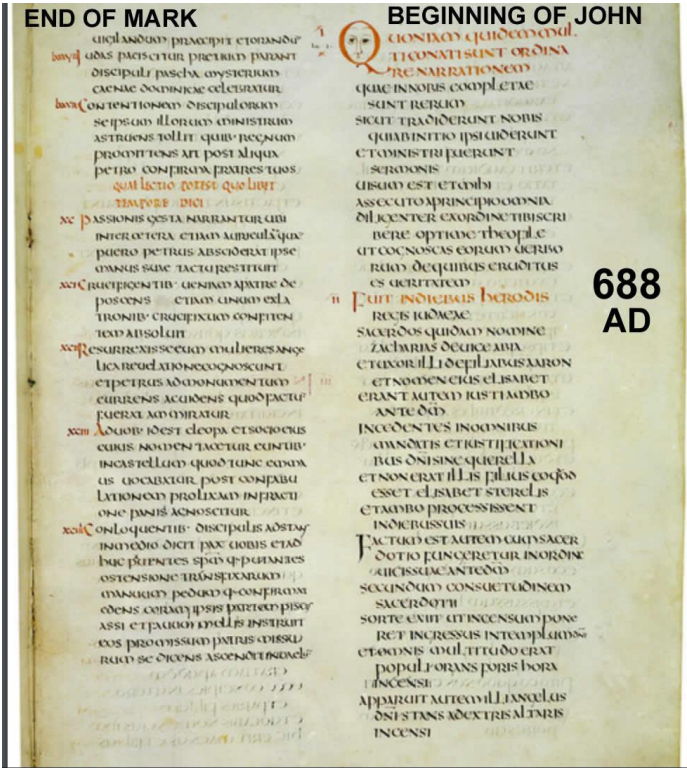 END OF MARK
BEGINNING OF JOHN
uigilandum praecipit etorandu
udas paciscitur pretium parant
discipuli pascha mysterium
caenae dominicae celebratur
Contentionem discipulorum
seipsum illorum ministrum
astruens tollit quib· regnum
promittens ait post aliqua
petro confirma fratres tuos
quae lectio potest quolibet
tempore dici
xc Passionis gesta narrantur ubi
inter cetera etiam auriculā quā
puero petrus absciderat ipse
manus suae tactu restituit
xci Crucifigentib· ueniam apatre de
poscens etiam unum exla
tronib· crucifixum confiten
tem absoluit
xcii Resurrexisse eum mulieres ange
lica reuelatione cognoscunt
et petrus ad monumentum
currens accidens quod factu
fuerat ammiratur
xciii Aduob· idest cleopa et socio eius
cuius nomen tacetur euntib·
in castellum quod tunc emma
us uocabatur post confabu
lationem prolixam in fracti
one panis agnoscitur
xciiii Conloquentib· discipulis adstans
in medio dicit pax uobis et ad
huc putantes spm
ostensione transfixarum
manuum pedum q· confirmat
edens coram ipsis partem pisc
assi et fauum mellis instruit
eos promissum patris missu
rum se dicens ascendit
Quoniam quidem mul
ti conati sunt ordina
re narrationem
quae in nobis completae
sunt rerum
sicut tradiderunt nobis
qui ab initio ipsi uiderunt
et ministri fuerunt
sermonis
uisum est et mihi
assecuto a principio omnia
diligenter exordine tibi scri
bere optime theofile
ut cognoscas eorum uerbo
rum de quibus eruditus
es ueritatem
ii Fuit in diebus herodis
regis iudaeae
sacerdos quidam nomine
zacharias de uice abia
et uxor illi de filiabus aaron
et nomen eius elisabet
erant autem iusti ambo
ante dm̄
incedentes in omnibus
mandatis et iustificationi
bus dni sine querella
et non erat illis filius eo quod
esset elisabet sterelis
et ambo processissent
in diebus suis
Factum est autem cum sacer
dotio fungeretur in ordine
uicis suae ante dm̄
secundum consuetudinem
sacerdotii
sorte exiit ut incensum pone
ret ingressus in templum dni
et omnis multitudo erat
populi orans foris hora
incensi
apparuit autem illi angelus
dni stans a dextris altaris
incensi
688
AD